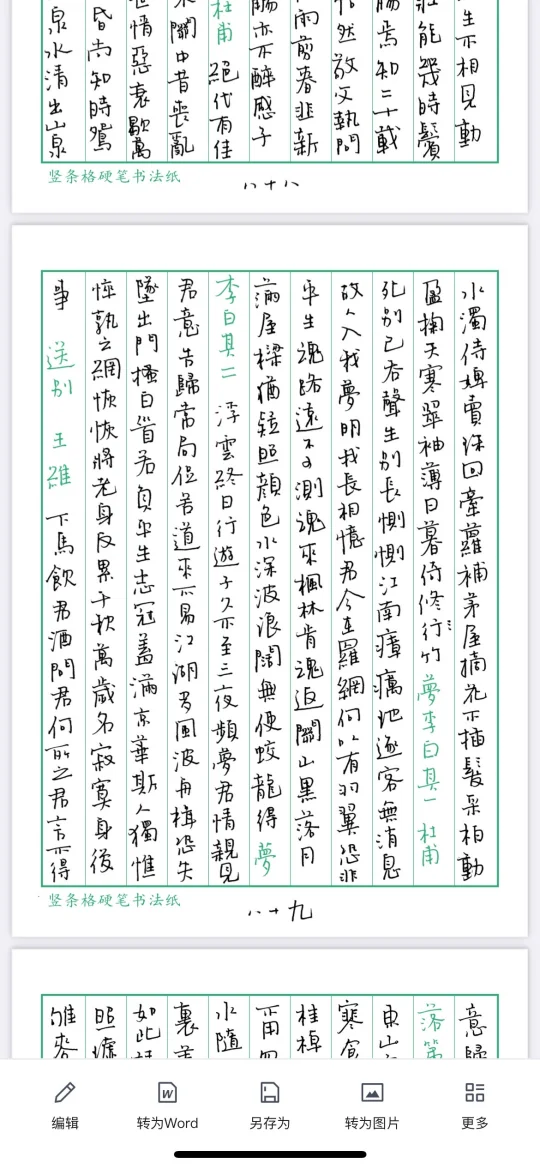 生不相見動
壯能幾時鬢
腸焉知二十載
怡然敬父執問
雨剪春韭新
觴亦不醉感子
杜甫 絕代有佳
關中昔喪亂
世情惡衰歇萬
昏尚知時鴛
泉水清出山泉
竖条格硬笔书法纸
八十八
水濁侍婢賣珠回牽蘿補茅屋摘花不插髮采柏動
盈掬天寒翠袖薄日暮倚修竹 夢李白其一 杜甫
死別已吞聲生別長惻惻江南瘴癘地逐客無消息
故人入我夢明我長相憶君今在羅網何以有羽翼恐非
平生魂路遠不可測魂來楓林青魂返關山黑落月
滿屋樑猶疑照顏色水深波浪闊無使蛟龍得 夢
李白其二 浮雲終日行遊子久不至三夜頻夢君情親見
君意告歸常局促苦道來不易江湖多風波舟楫恐失
墜出門搔白首若負平生志冠蓋滿京華斯人獨憔
悴孰云網恢恢將老身反累千秋萬歲名寂寞身後
事 送別 王維 下馬飲君酒問君何所之君言不得
竖条格硬笔书法纸
八十九
意歸
落第
東山
寒食
桂棹
當
水隨
裏
如此
照墟
雉
编辑
转为Word
另存为
转为图片
更多